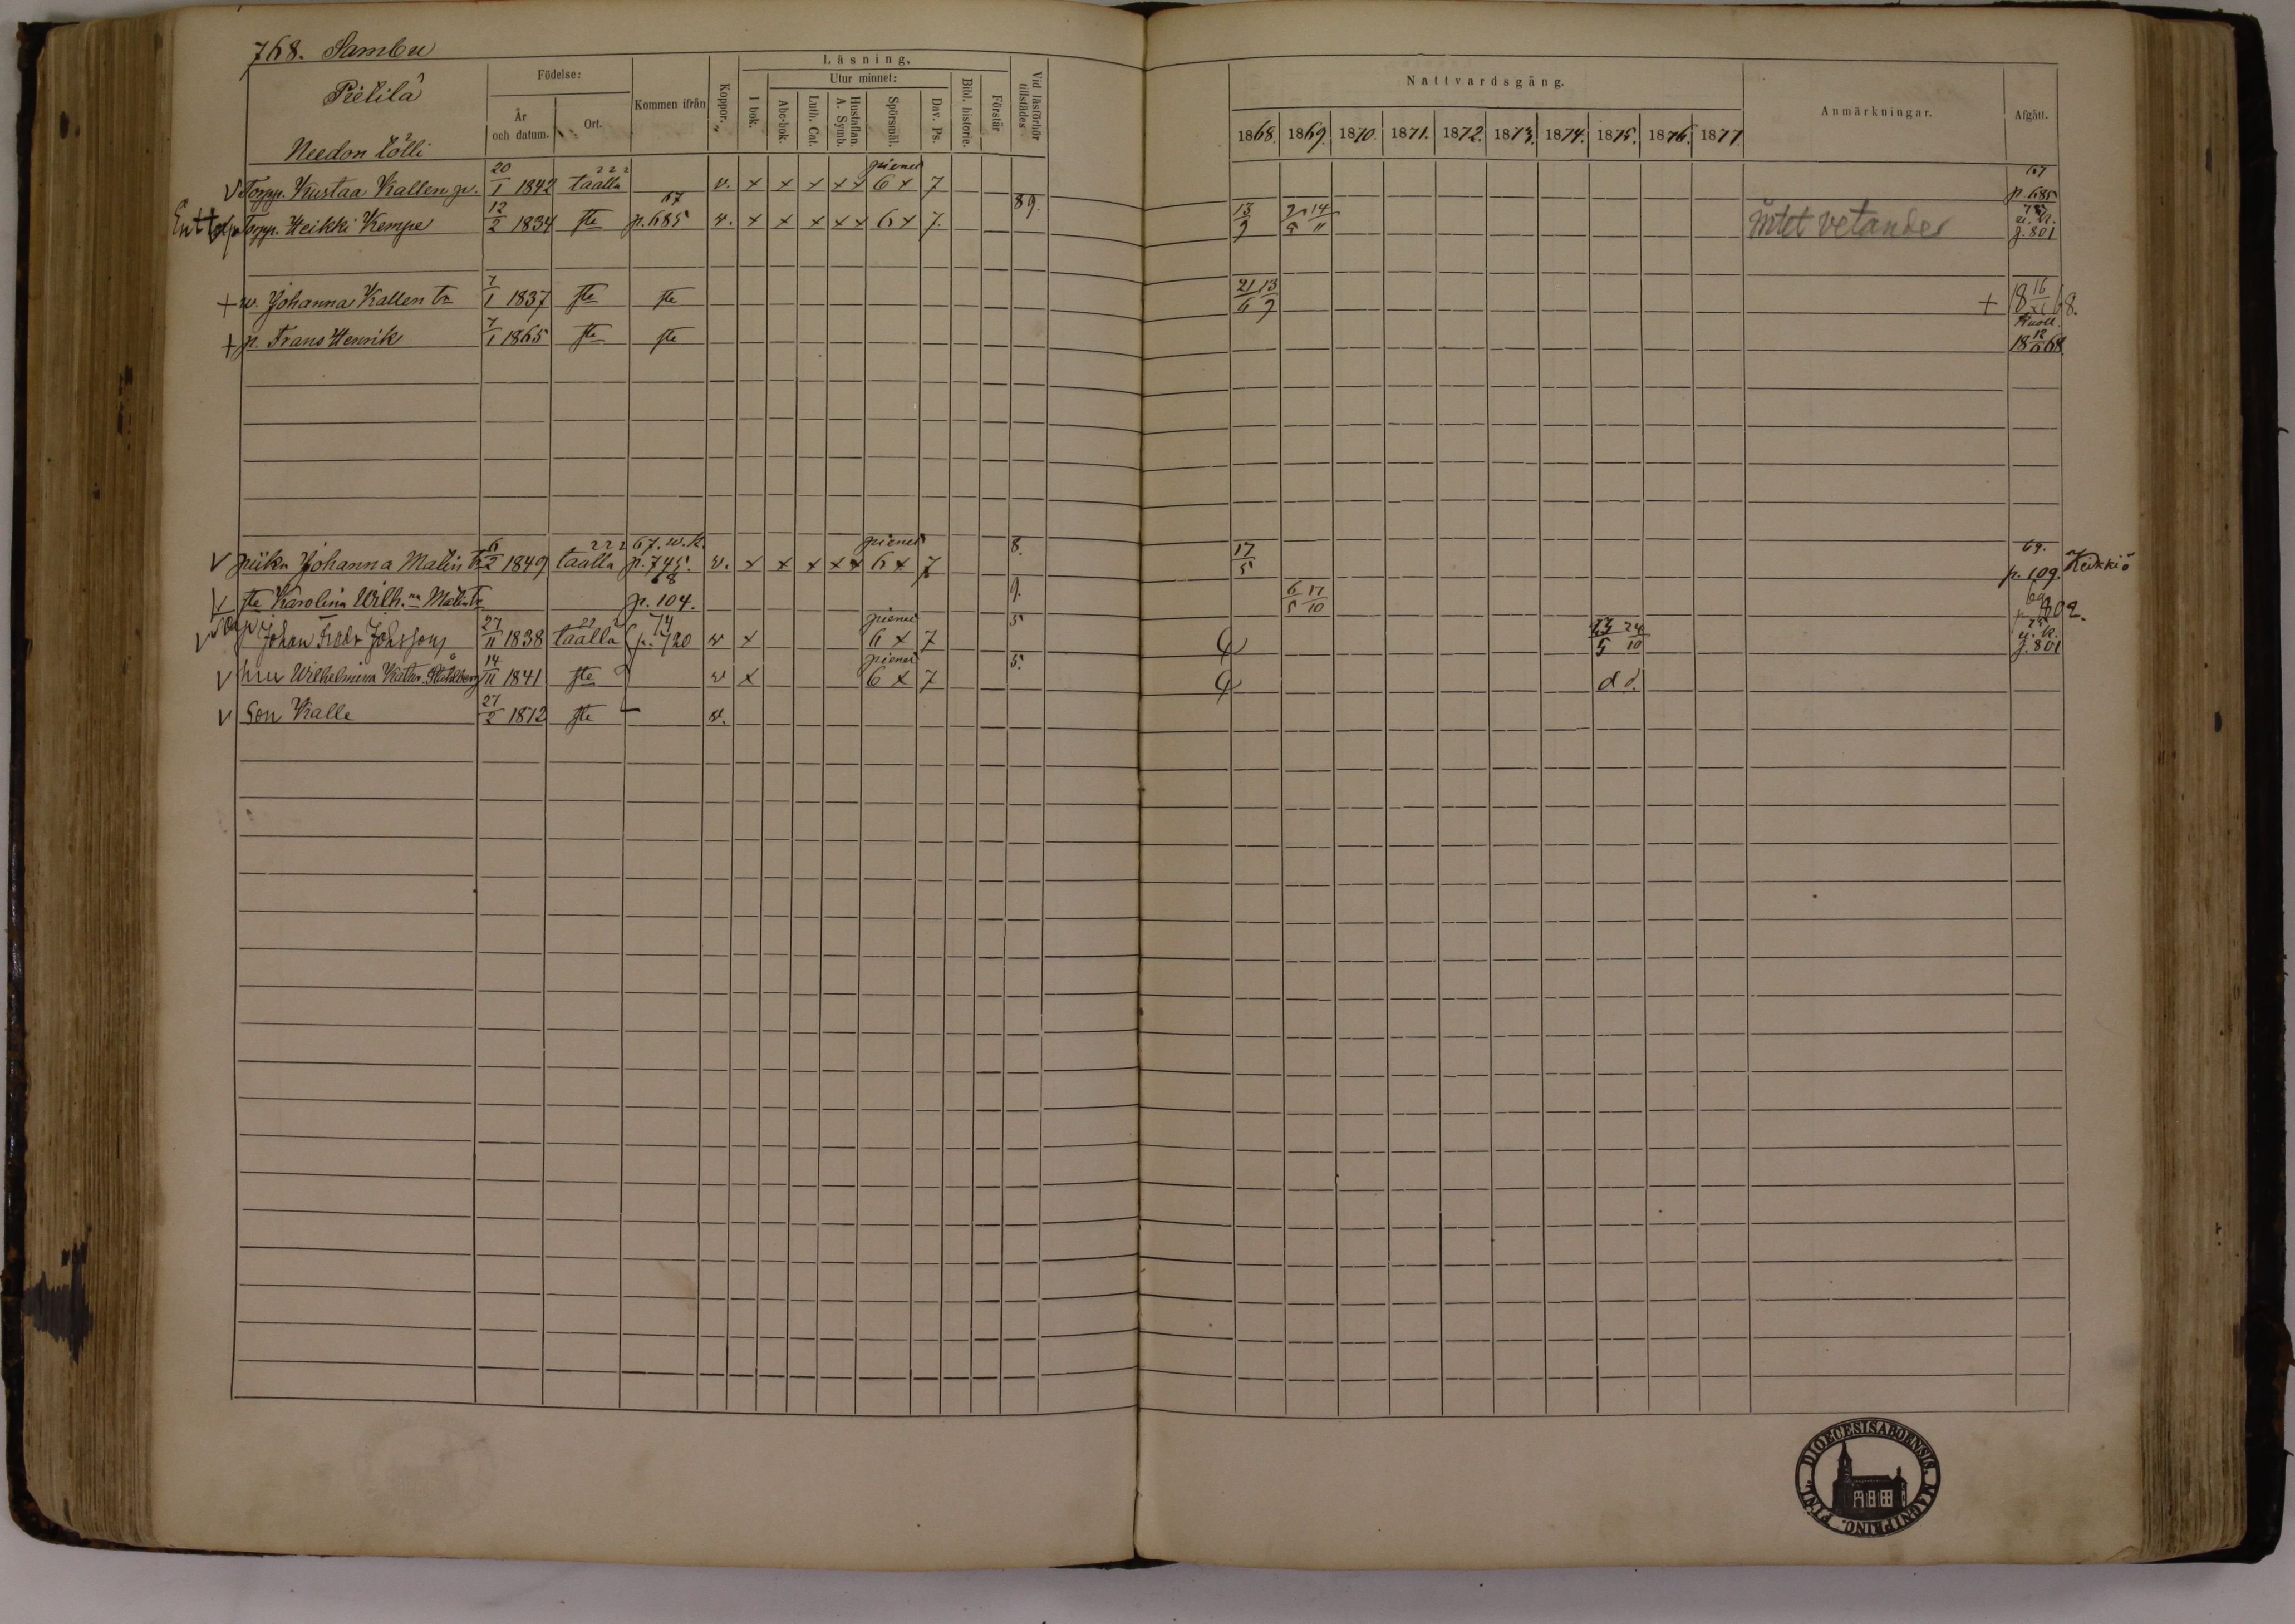 768. Sambu
Pietilä
Needon tölli
Födelse:
År och datum.
Ort.
Kommen ifrån
Koppor.
Läsning.
I bok.
Utur minnet:
Abc-bok.
Luth. Cat.
Hustaflan. A. Symb.
Spörsmål.
Dav. Ps.
Bibl. historie.
Förstår
Vid läsförhör tillstädes
Nattvardsgång.
1868. 1869. 1870. 1871. 1872. 1873. 1874. 1875. 1876. 1877.
Anmärkningar.
Afgått.
v Torpp. Kustaa Kallen p. 20/1 1842 täällä v. x x x x x pienet 6 x 7 67 p. 685
Torpp. Heikki Kempe 12/2 1834 ste 67 p. 685 v. x x x x x 6 x 7. 89. 13/9 9/5 14/11 intet vetandes u. k. p. 801
+ w. Johanna Kallen tr 7/1 1837 ste ste 21/6 13/9 + 18 16/XI 68.
+ p. Frans Henrik 7/1 1865 ste ste Kuoll. 18 12/ 68
v piika Johanna Matin tr 6/2 1849 täällä 67. w.k. p. 745. v. x x x x x pienet 6 x 7 8. 17/5 69. p. 109. Heikkiö
v ste Karolina Wilh.na Matin tr 68 p. 104. 9. 6/5 17/10 69 p. 802.
v Johan Fredr Johsson 27/11 1838 täällä 74 p. 720 v x pienet 6 x 7 5 23/5 24/10 75 u. k. p. 801
v hru Wilhelmina Kathr. Ståhlberg 14/11 1841 ste v x pienet 6 x 7 5. d d.
v Son Kalle 27/2 1872 ste v.
DIOECESIS ABOENSIS. MAGNI PRINC. FINL.